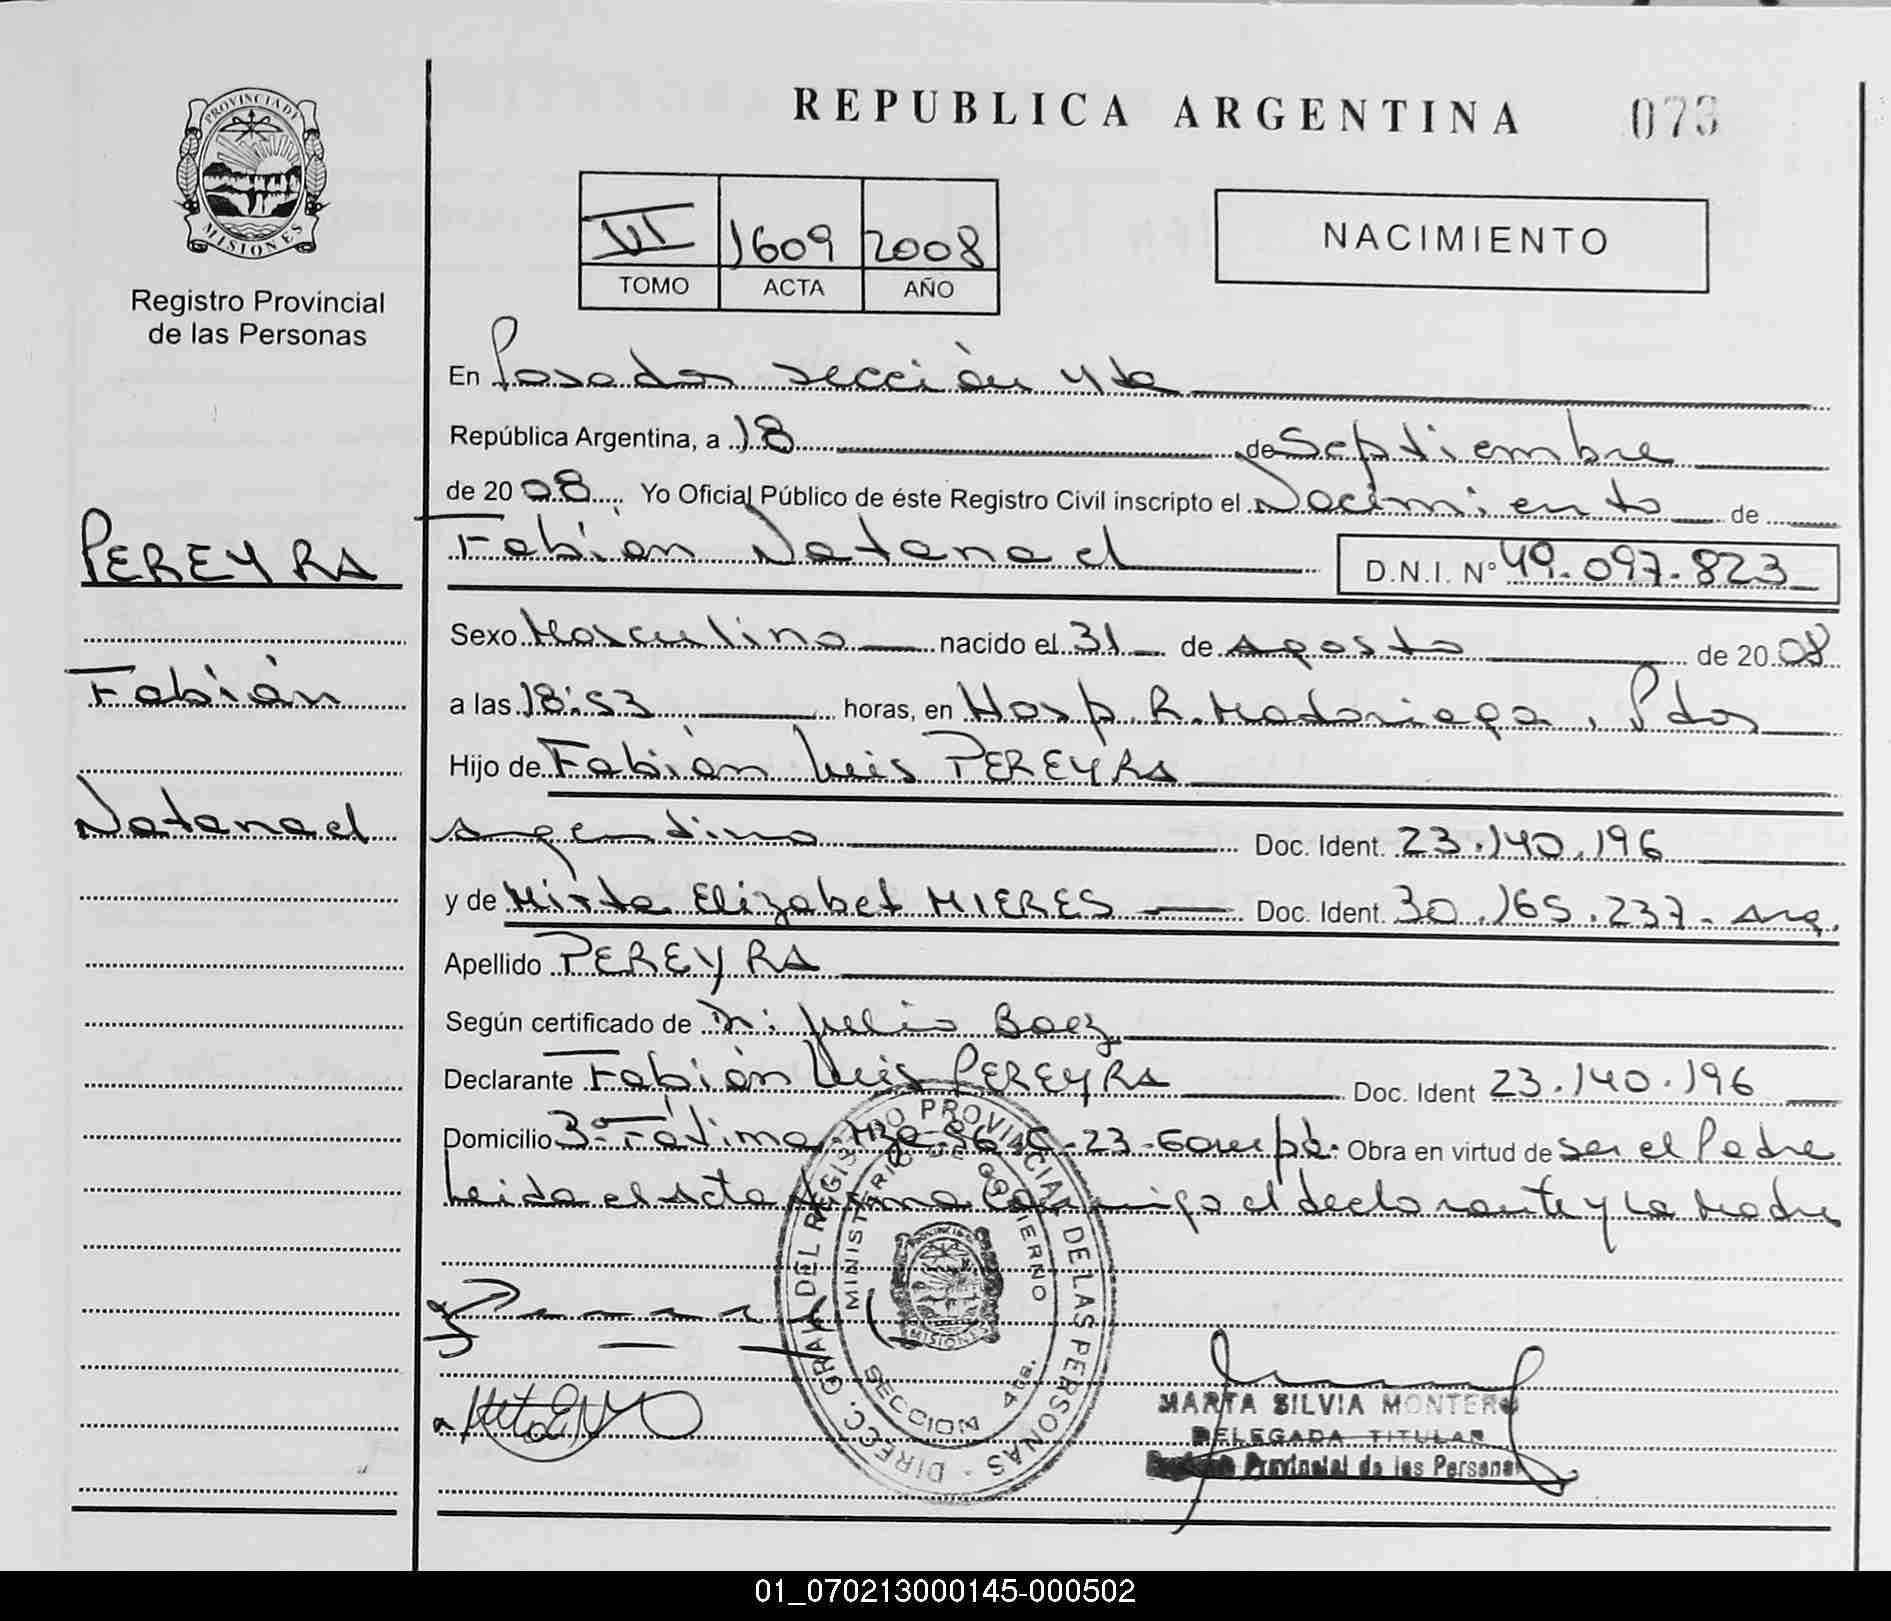 REPUBLICA ARGENTINA
073
PROVINCIA DE
MISIONES
Registro Provincial
de las Personas
VI 1609 2008
TOMO ACTA AÑO
NACIMIENTO
En Posadas sección 4ta
República Argentina, a 18 de Septiembre
de 2008 Yo Oficial Público de éste Registro Civil inscripto el Nacimiento de
Fabián Natanael D.N.I. N° 49.097.823
Sexo Masculino nacido el 31 de Agosto de 2008
a las 18:53 horas, en Hosp. R. Madariaga, Pdas
Hijo de Fabián Luis PEREYRA
Argentino Doc. Ident. 23.140.196
y de Mirta Elizabet MIERES Doc. Ident. 30.165.237 - Arg.
Apellido PEREYRA
Según certificado de Dr: Julio Baez
Declarante Fabián Luis PEREYRA Doc. Ident 23.140.196
Domicilio Fátima 23 Obra en virtud de ser el Padre
Leida el Acta firma conmigo el declarante y la Madre
PEREYRA
Fabián
Natanael
DIRECC. GRAL. DEL REGISTRO PROVINCIAL DE LAS PERSONAS
MINISTERIO DE GOBIERNO
MISIONES
SECCION 4ta.
MARTA SILVIA MONTERO
DELEGADA TITULAR
Registro Provincial de las Personas
01_070213000145-000502